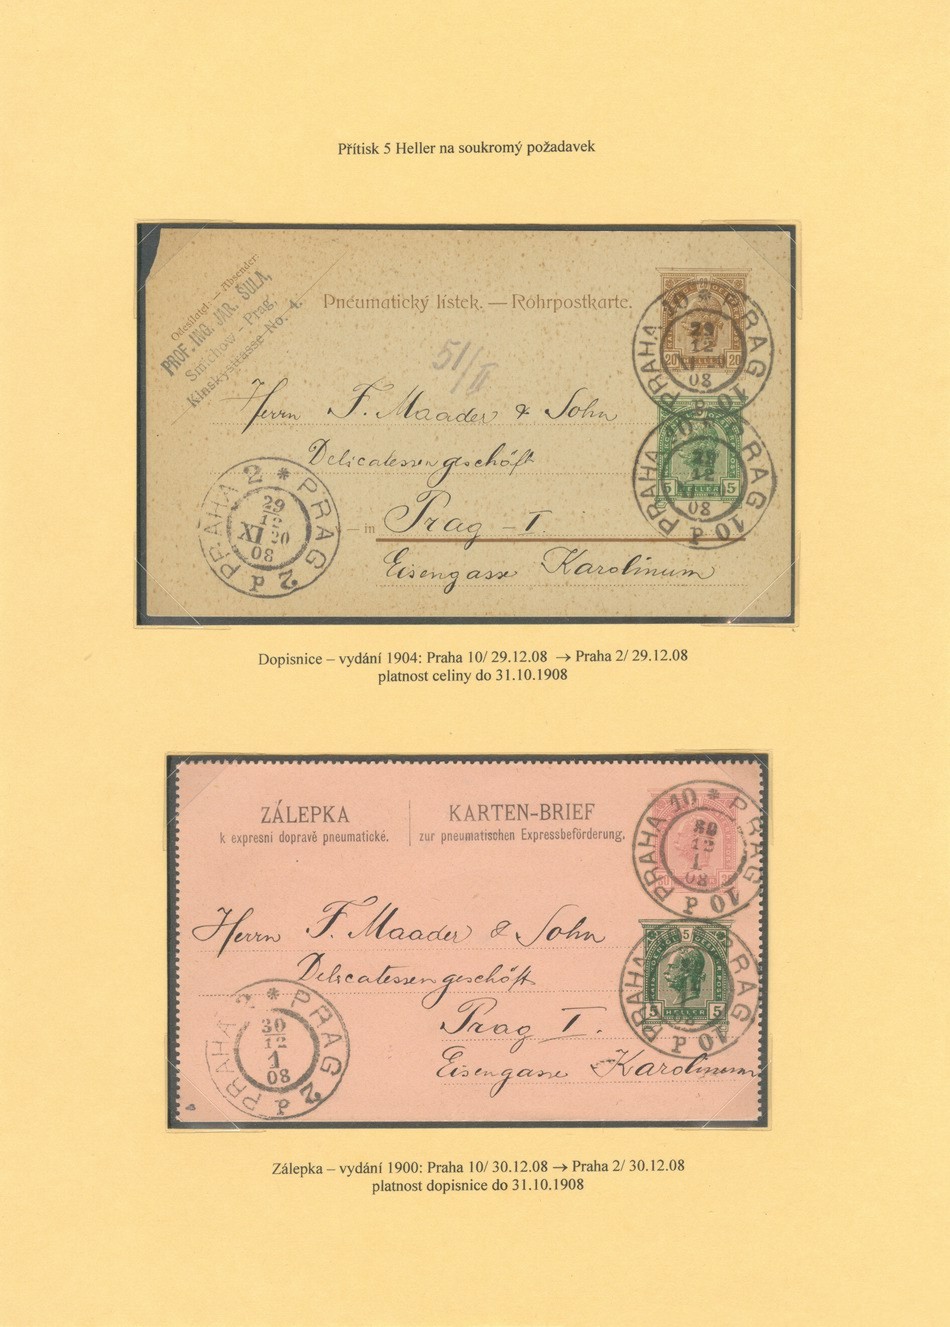 Přítisk 5 Heller na soukromý požadavek
Odesílatel: — Absender:
PROF. ING. JAR. ŠULA,
Smíchow - Prag,
Kinskystrasse No. 4.
Pneumatický lístek. — Rohrpostkarte.
51/II
20 20
PRAHA 10 * PRAG 10 P
29
12
08
Herrn F. Maader & Sohn
Delicatessengeschäft
5 HELLER 5
PRAHA 10 PRAG 10 P
12
08
— in Prag - I.
Eisengasse Karolinum
PRAHA 2 * PRAG 2 P
29
12
XI 20
08
Dopisnice – vydání 1904: Praha 10/ 29.12.08 → Praha 2/ 29.12.08
platnost celiny do 31.10.1908
ZÁLEPKA
k expresní dopravě pneumatické.
KARTEN-BRIEF
zur pneumatischen Expressbeförderung.
PRAHA 10 * PRAG 10 P
30
12
1
08
Herrn F. Maader & Sohn
Delicatessengeschäft
5
5 HELLER 5
PRAHA PRAG 10 P
Prag I.
Eisengasse Karolinum
PRAHA 2 * PRAG 2 P
30
12
1
08
Zálepka – vydání 1900: Praha 10/ 30.12.08 → Praha 2/ 30.12.08
platnost dopisnice do 31.10.1908